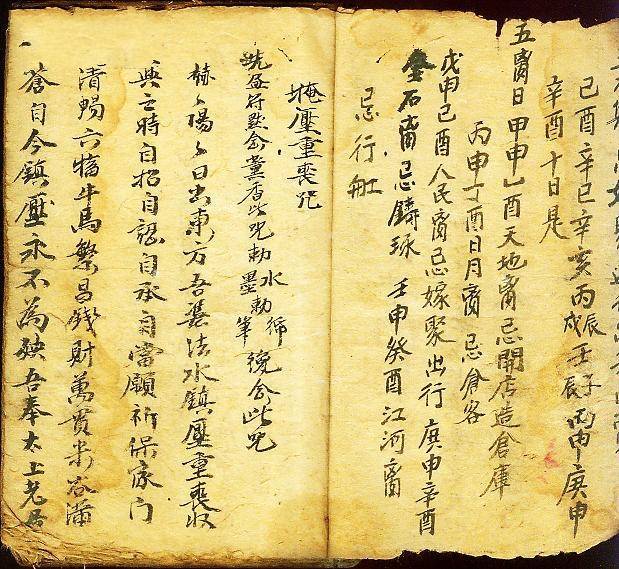 己酉辛巳辛亥丙辰戌壬子辰丙申庚申
辛酉十日是
五离日甲申乙酉天地离忌開店造倉庫
丙申丁酉日月离 忌倉客
戊申己酉人民离忌嫁娶出行 庚申辛酉
金石离忌鑄琢 壬申癸酉江河离
忌行舡
掩壓重喪咒
符念薰香此咒勅水勅墨筆後念此咒
赫〻陽〻日出東方吾法水鎮壓重喪收
與立時自招自認自承自當願祈保家门
清暢六牲牛馬繁昌錢財萬貫米谷滿
蒼自今鎮壓永不為殃吾奉太上老君